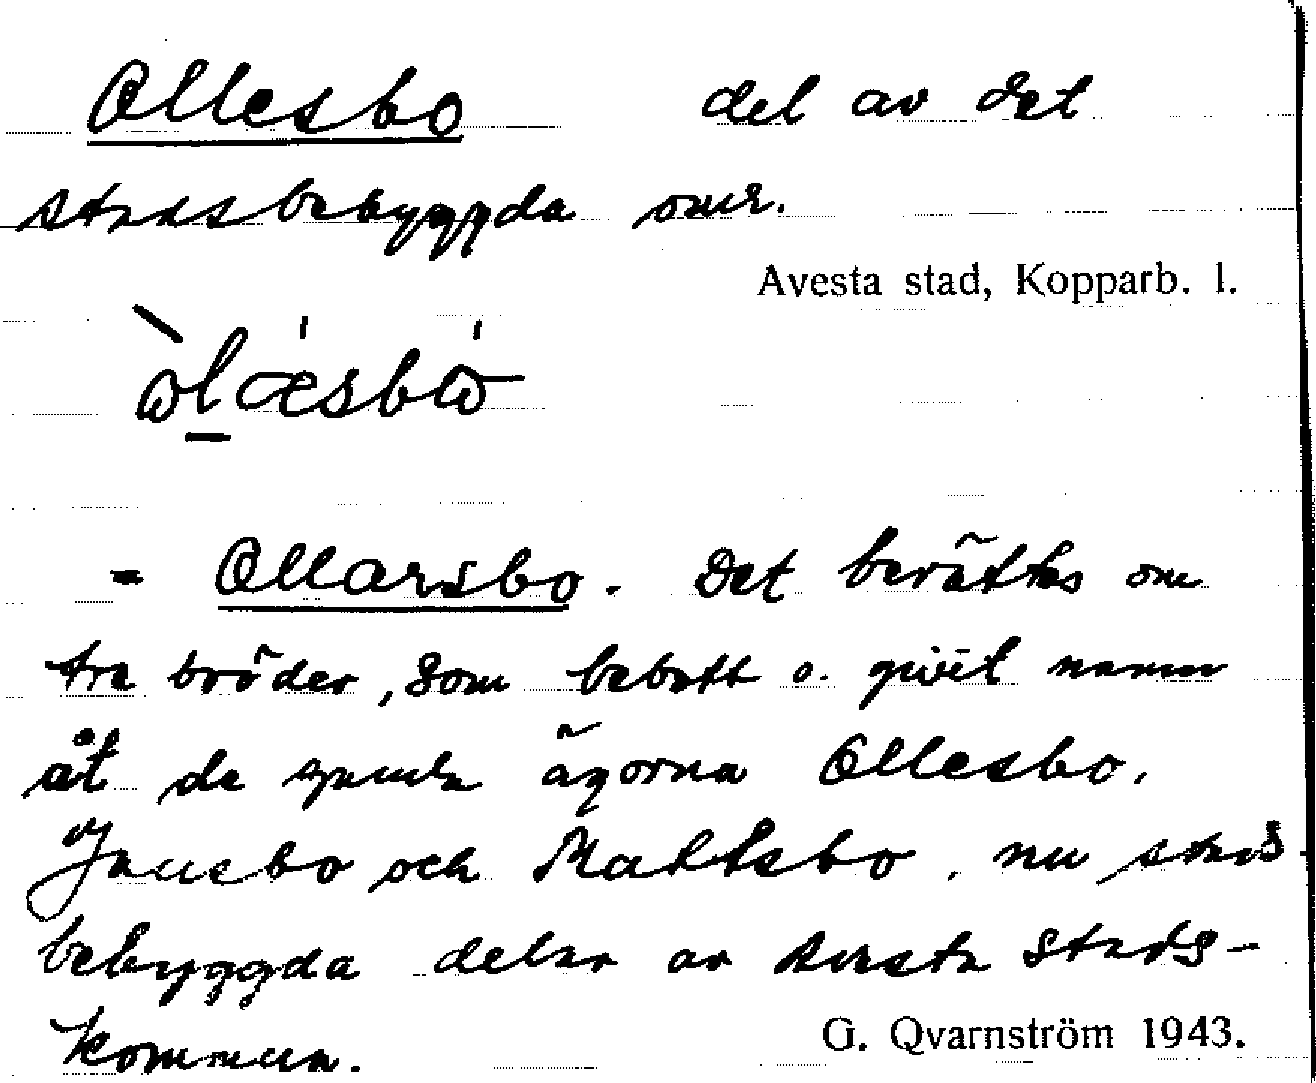 Ollesbo del av det
stadsbebyggda omr.
Avesta stad, Kopparb. l.
= Ollarsbo. Det berättas om
tre bröder, som bebott o. givit namn
åt de gamla ägorna Ollesbo,
Jannsbo och Maltsbo, nu stads-
bebyggda delar av Avesta stads-
kommun.
G. Qvarnström 1943.